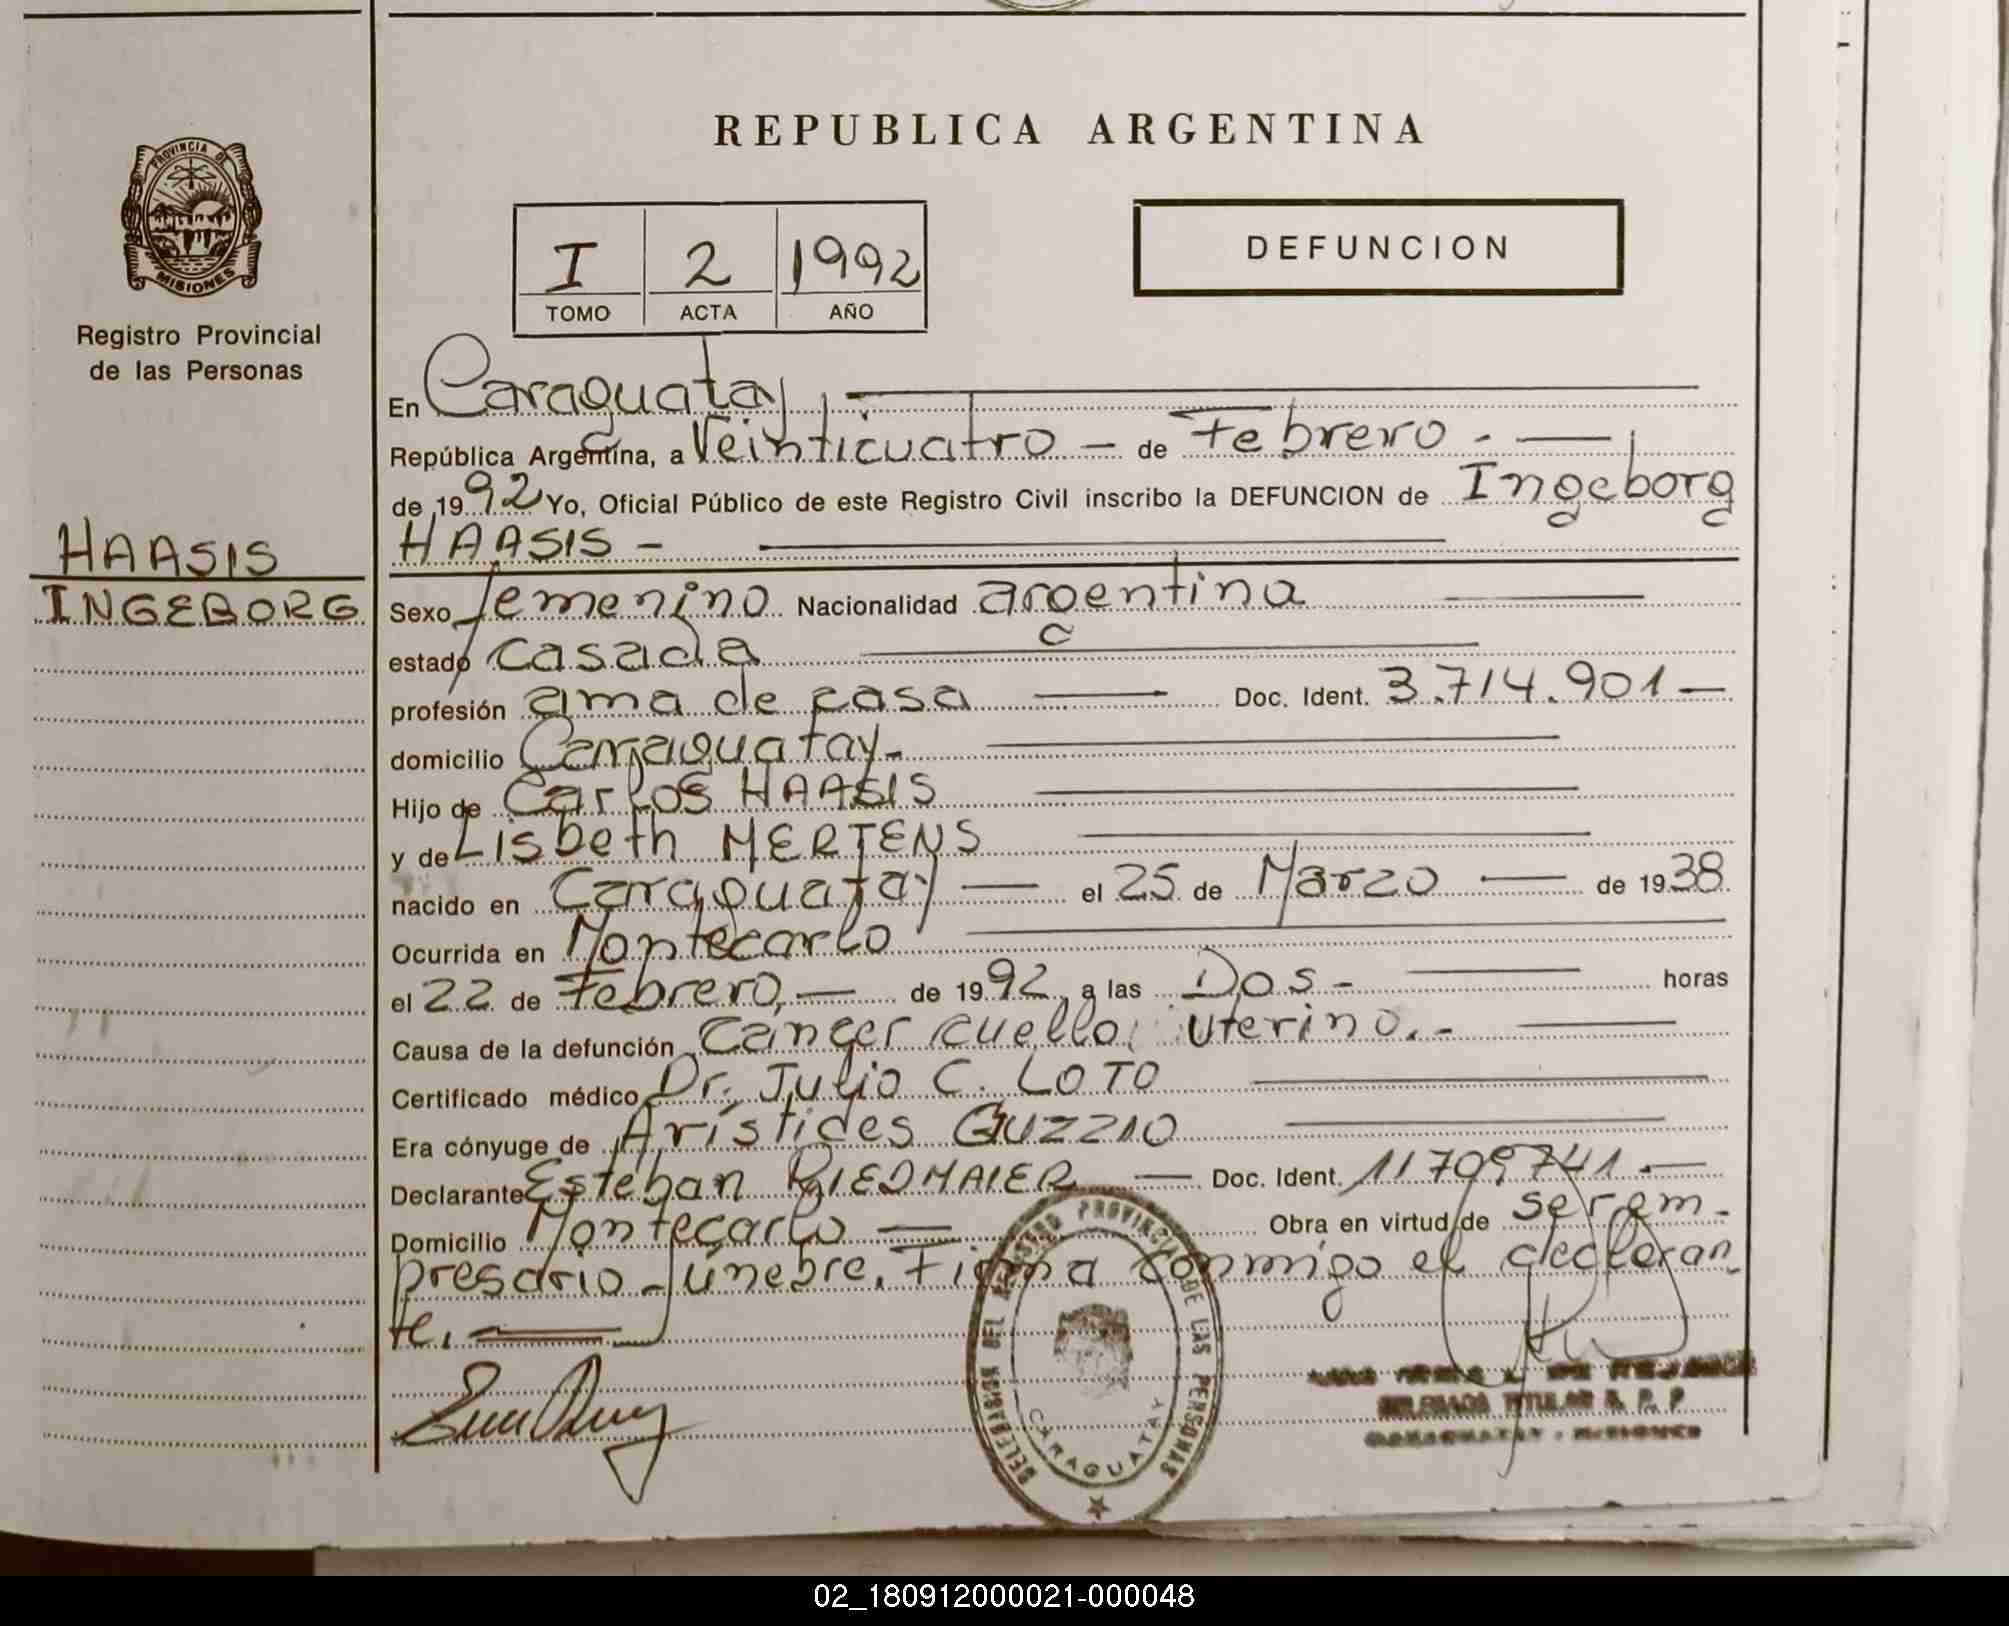 PROVINCIA DE
MISIONES
Registro Provincial
de las Personas
HAASIS
INGEBORG
REPUBLICA ARGENTINA
I 2 1992
TOMO ACTA AÑO
DEFUNCION
En Caraguatay
República Argentina, a Veinticuatro - de Febrero.-
de 1992 Yo, Oficial Público de este Registro Civil inscribo la DEFUNCION de Ingeborg
HAASIS -
Sexo femenino Nacionalidad argentina
estado casada
profesión ama de casa Doc. Ident. 3.714.901-
domicilio Caraguatay-
Hijo de Carlos HAASIS
y de Lisbeth MERTENS
nacido en Caraguatay - el 25 de Marzo - de 1938
Ocurrida en Montecarlo
el 22 de Febrero,- de 1992, a las Dos- horas
Causa de la defunción Cáncer cuello uterino.-
Certificado médico Dr. Julio C. LOTO
Era cónyuge de Arístides GUZZIO
Declarante Esteban RIEDMAIER - Doc. Ident. 11709741.-
Domicilio Montecarlo - Obra en virtud de ser em-
presario fúnebre. Firma conmigo el declaran-
te.
DELEGACION DEL REGISTRO PROVINCIAL DE LAS PERSONAS
CARAGUATAY
DELEGADA TITULAR R. P. P.
CARAGUATAY - MISIONES
02_180912000021-000048